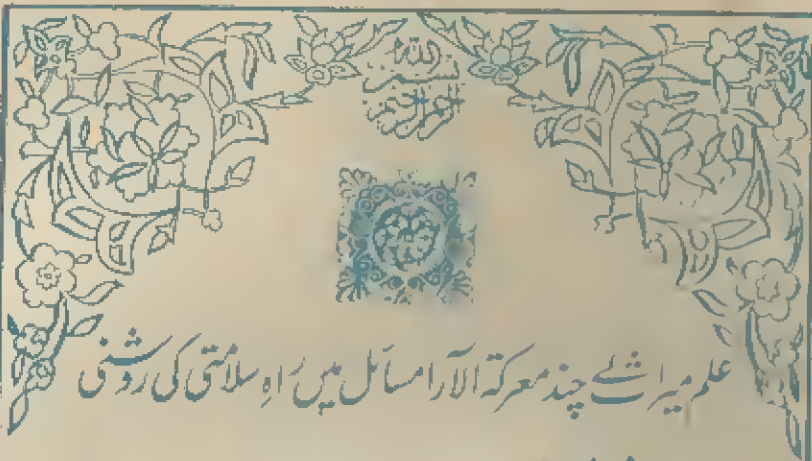 بسم الله الرحمن الرحیم
علم میراث کے چند معرکۃ الآرا مسائل میں راہِ سلامتی کی روشنی